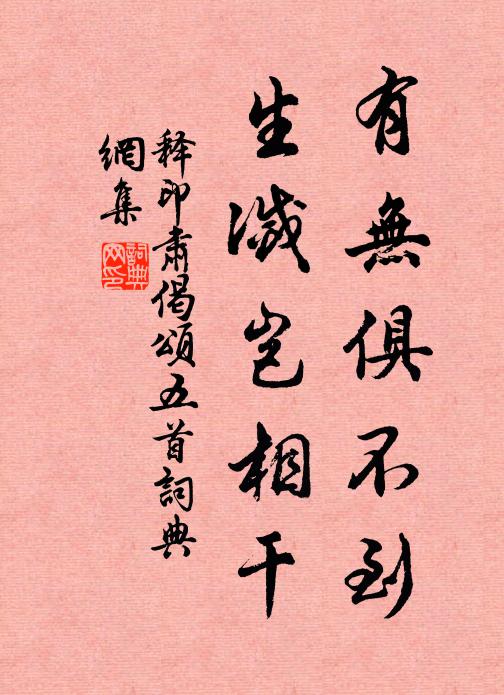 有無俱不到
生滅豈相干
释印肃偈頌五首詞典
網集
詞典
网印